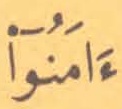 ءَامَنُوٓاْ